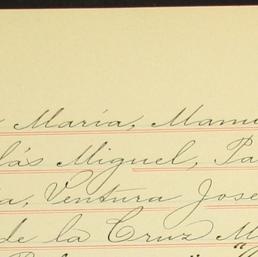 María, Manu
lás Miguel, Pa
ia, Ventura Jose
de la Cruz M